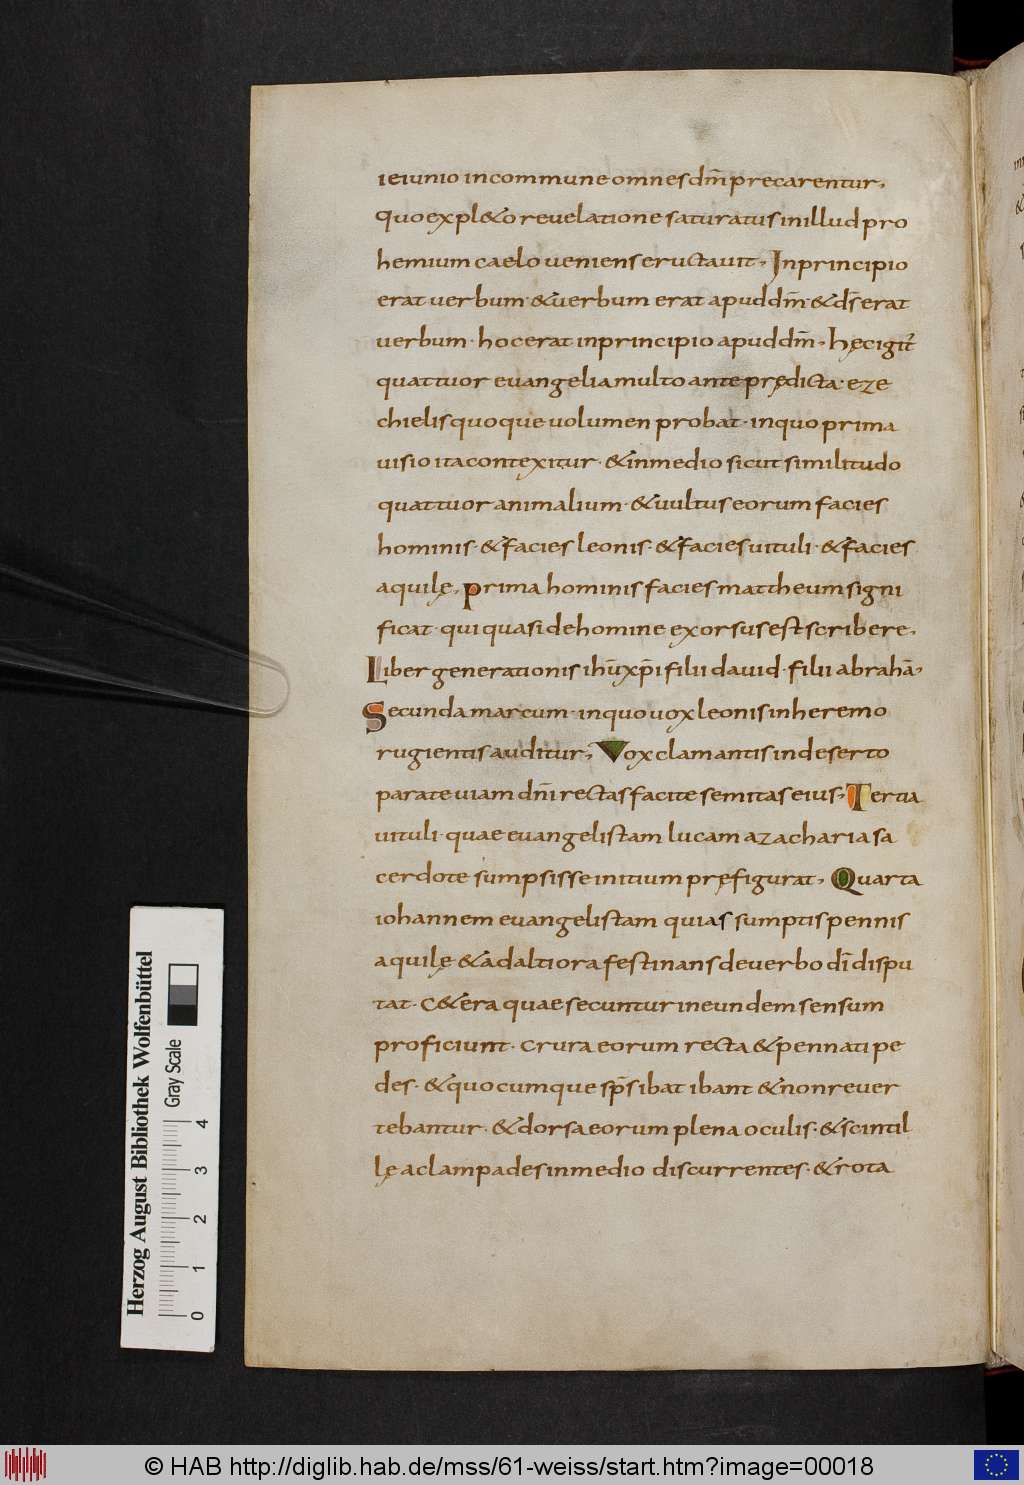 ieiunio incommune omnes dm̄ precarentur,
quo expl&o reuelatione saturatus inillud pro
hemium caelo ueniens eructauit, Inprincipio
erat uerbum· &uerbum erat apud dm̄· &ds̄ erat
uerbum· hoc erat inprincipio apud dm̄, hęc igit̄
quattuor euangelia multo ante prędicta· eze
chielis quoque uolumen probat· inquo prima
uisio ita contexitur· &inmedio sicut similitudo
quattuor animalium· &uultus eorum facies
hominis· &facies leonis· &facies uituli· &facies
aquilę, prima hominis facies mattheum signi
ficat· qui quasi dehomine exorsus est scribere,
Liber generationis ihū xp̄i filii dauid· filii abrahā,
Secunda marcum· inquo uox leonis inheremo
rugientis auditur, Vox clamantis indeserto
parate uiam dn̄i rectas facite semitas eius, Tertia
uituli· quae euangelistam lucam azacharia sa
cerdote sumpsisse initium pręfigurat, Quarta
iohannem euangelistam quia sumptis pennis
aquilę &ad altiora festinans deuerbo dī dispu
tat· C&era quae secuntur ineundem sensum
proficiunt· crura eorum recta &pennati pe
des· &quocumque sps̄ ibat ibant &non reuer
tebantur· &dorsa eorum plena oculis· &scintil
lę ac lampades inmedio discurrentes· &rota
Herzog August Bibliothek Wolfenbüttel
Gray Scale
0 1 2 3 4
© HAB http://diglib.hab.de/mss/61-weiss/start.htm?image=00018